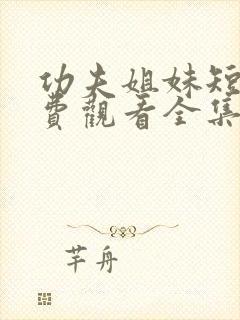 功夫姐妹短
費觀看全集
芊舟